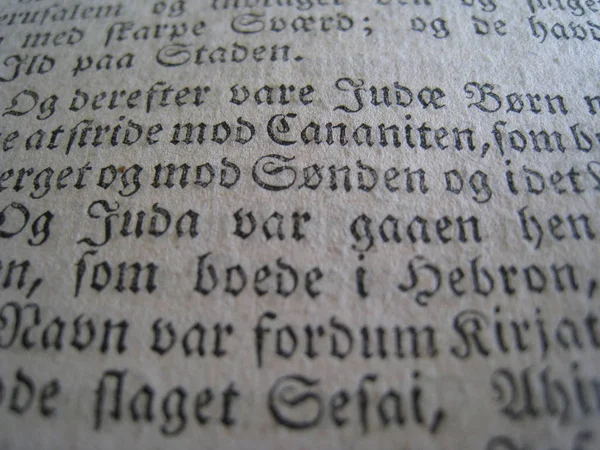 erusalem og indtaget den og slaget
med skarpe Sværd; og de havd
Ild paa Staden.
Og derefter vare Judæ Børn n
e at stride mod Cananiten, som b
erget og mod Sønden og i det
Og Juda var gaaen hen
en, som boede i Hebron,
Navn var fordum Kirjat
ode slaget Sesai, Ahi